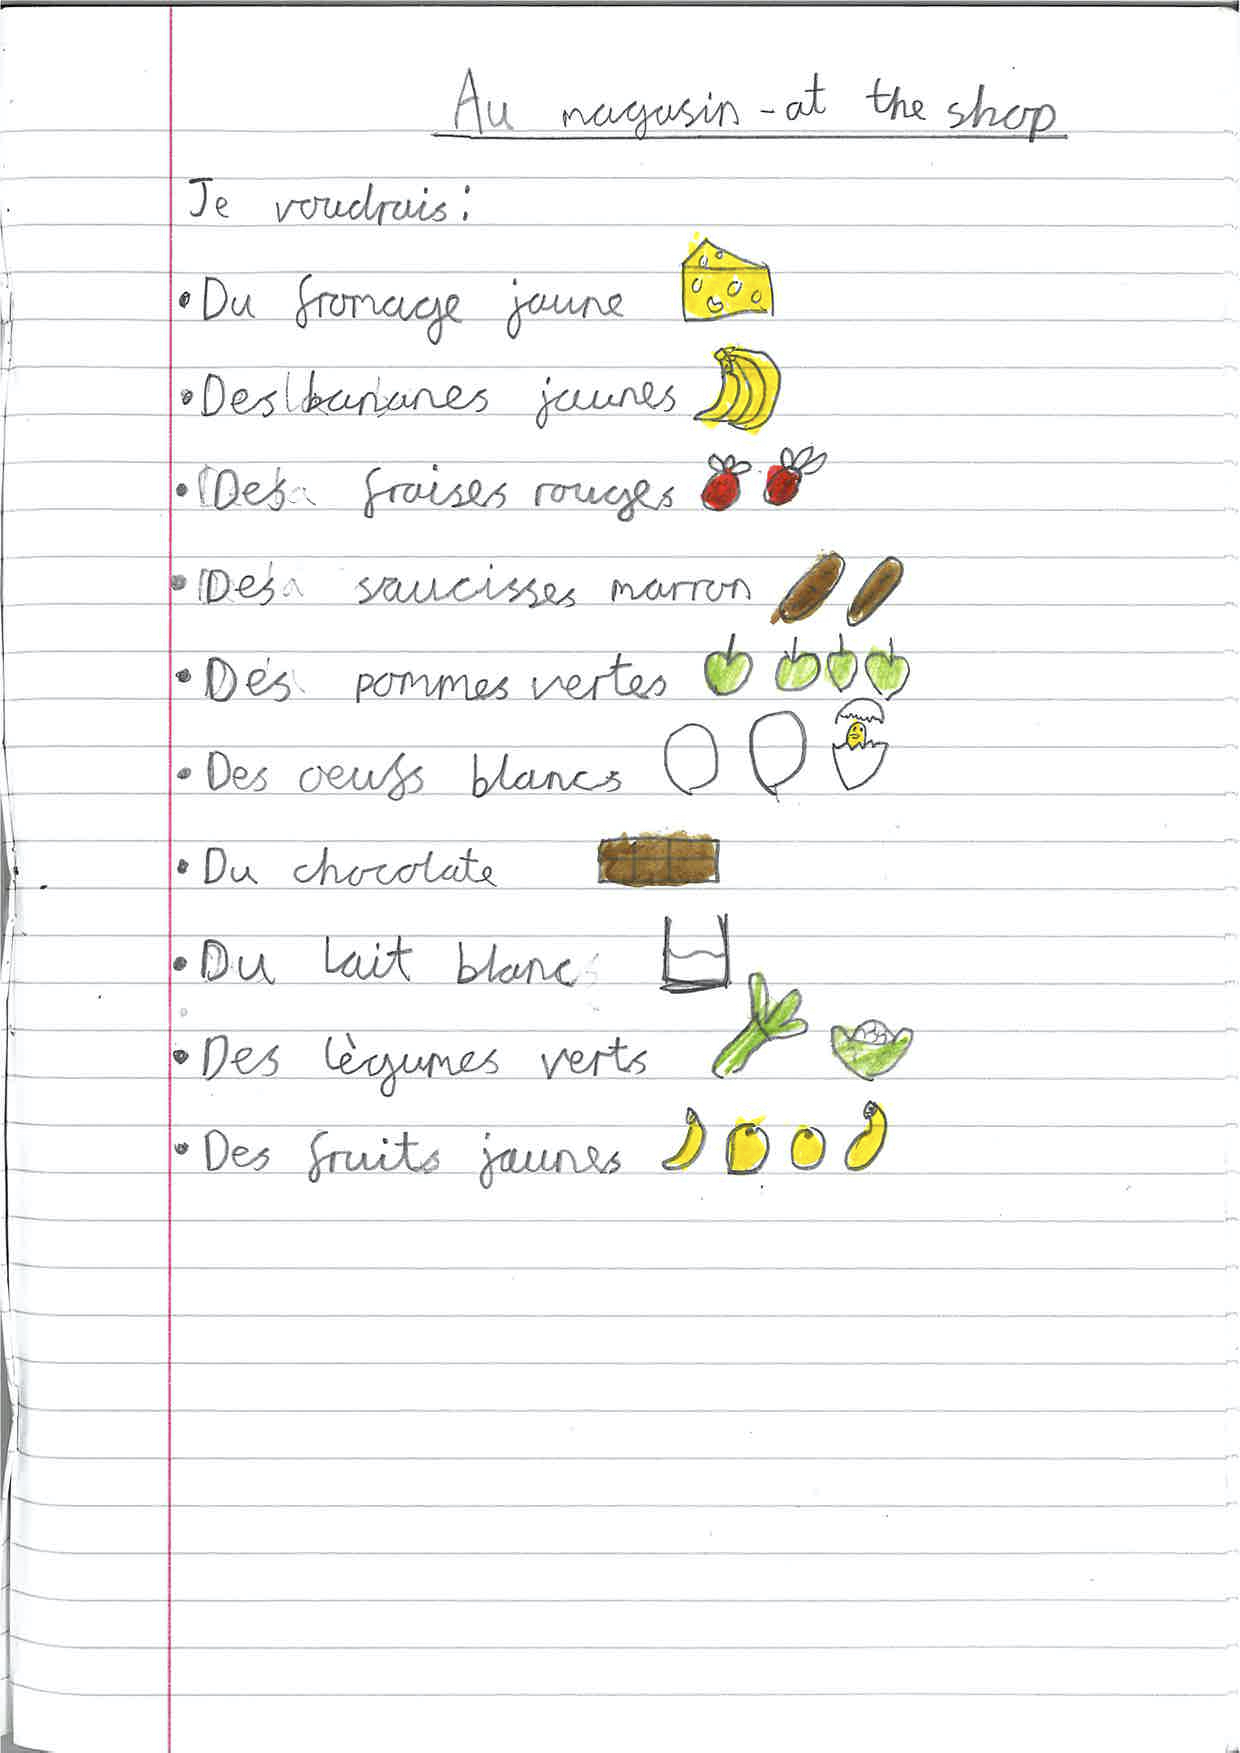 Au magasin - at the shop
Je voudrais:
• Du fromage jaune
• Des bananes jaunes
• Des fraises rouges
• Des saucisses marron
• Des pommes vertes
• Des oeufs blancs
• Du chocolate
• Du lait blanc
• Des lègumes verts
• Des fruits jaunes